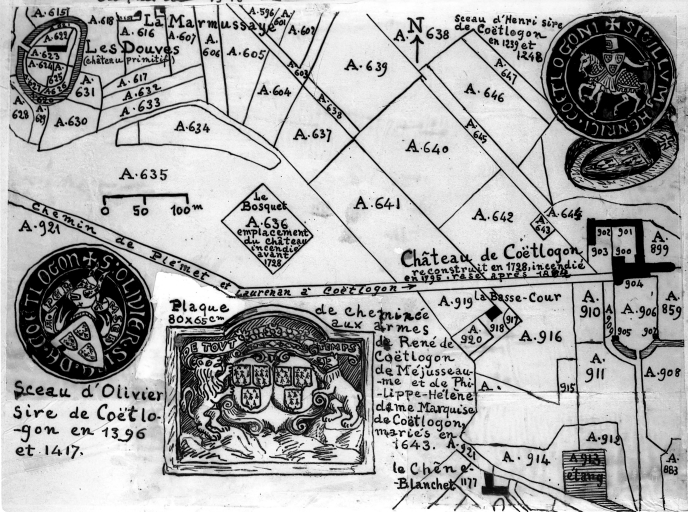 A.615
A.618
La Marmussaye
A.616
A.607
A.596
A.601
A.602
A.606
A.605
A.603
A.604
Les Douves
(château primitif)
A.622
A.623
A.624
A.625
A.631
A.617
A.632
A.633
A.628
A.630
A.634
A.635
0 50 100m
A.637
A.638
A.639
A.638
N
sceau d'Henri sire
de Coëtlogon
en 1239 et
1248
SIGILLVM HENRICI COETLOGONI
A.647
A.646
A.645
A.640
A.641
A.642
A.643
A.644
Le
Bosquet
A.636
emplacement
du château
incendié
avant
1728
Chemin de Plémet et Laurenan à Coëtlogon →
A.921
Château de Coëtlogon
reconstruit en 1728, incendié
en 1795, rasé après
902
901
903
900
904
A.899
A.919
la Basse-Cour
917
918
A.920
A.916
A.910
A.906
905
907
A.859
A.911
A.908
915
A.912
A.913
étang
A.914
A.921
A.883
le Chêne-
Blanchet
1177
Sceau d'Olivier
sire de Coëtlo-
-gon en 1396
et 1417.
Plaque
80x65cm
de cheminée
aux armes
de René de
Coëtlogon
de Méjusseau-
-me et de Phi-
-Lippe-Hélène
dame Marquise
de Coëtlogon
mariés en
1643.
DE TOUT TEMPS